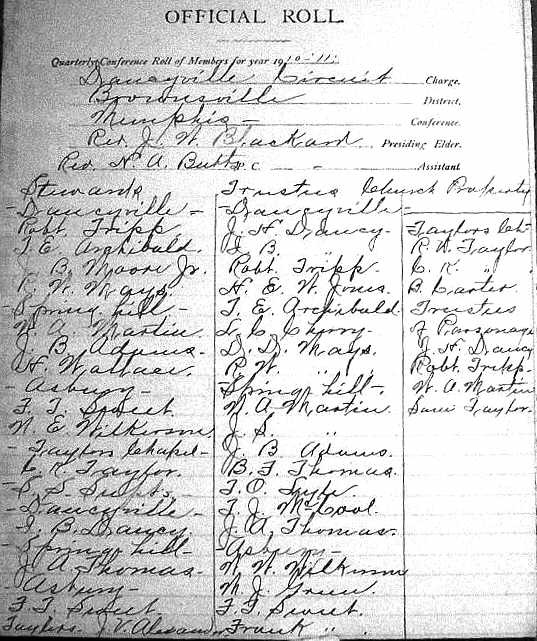 OFFICIAL ROLL.
Quarterly Conference Roll of Members for year 1910-'11:
Dancyville Circuit Charge.
Brownsville District.
Memphis - Conference.
Rev. J. W. Blackard Presiding Elder.
Rev. H. A. Butts P. C. - Assistant.
Stewards
- Dancyville -
Robt. Tripp
T. E. Archibald.
J. B. Moore Jr.
R. W. Mays.
- Spring hill -
W. A. Martin
J. B. Adams.
H. Wallace.
- Asbury -
F. T. Sweet
N. E. Wilkerson
- Taylors Chapel -
C. K. Taylor.
- S. S. Supts. -
- Dancyville -
J. B. Dancy
- Spring hill -
J. A. Thomas.
- Asbury -
F. T. Sweet.
Taylors. J. V. Alexander
Trustees Church Property
- Dancyville -
J. H. Dancy.
J. B. "
Robt. Tripp.
H. E. W. Jones.
T. E. Archibald.
L. C. Cherry.
D. D. Mays.
R. W. "
Spring hill -
W. A. Martin
J. S. "
J. B. Adams.
B. F. Thomas.
T. O.
T. J. McCool.
J. A. Thomas.
- Asbury -
N. W. Wilkerson
M. J. Green.
F. T. Sweet.
Frank "
Taylors Ch-
R. A. Taylor.
C. K. "
B. Carter.
Trustees
of Parsonage
J. H. Dancy
Robt. Tripp.
W. A. Martin
Sam Taylor.